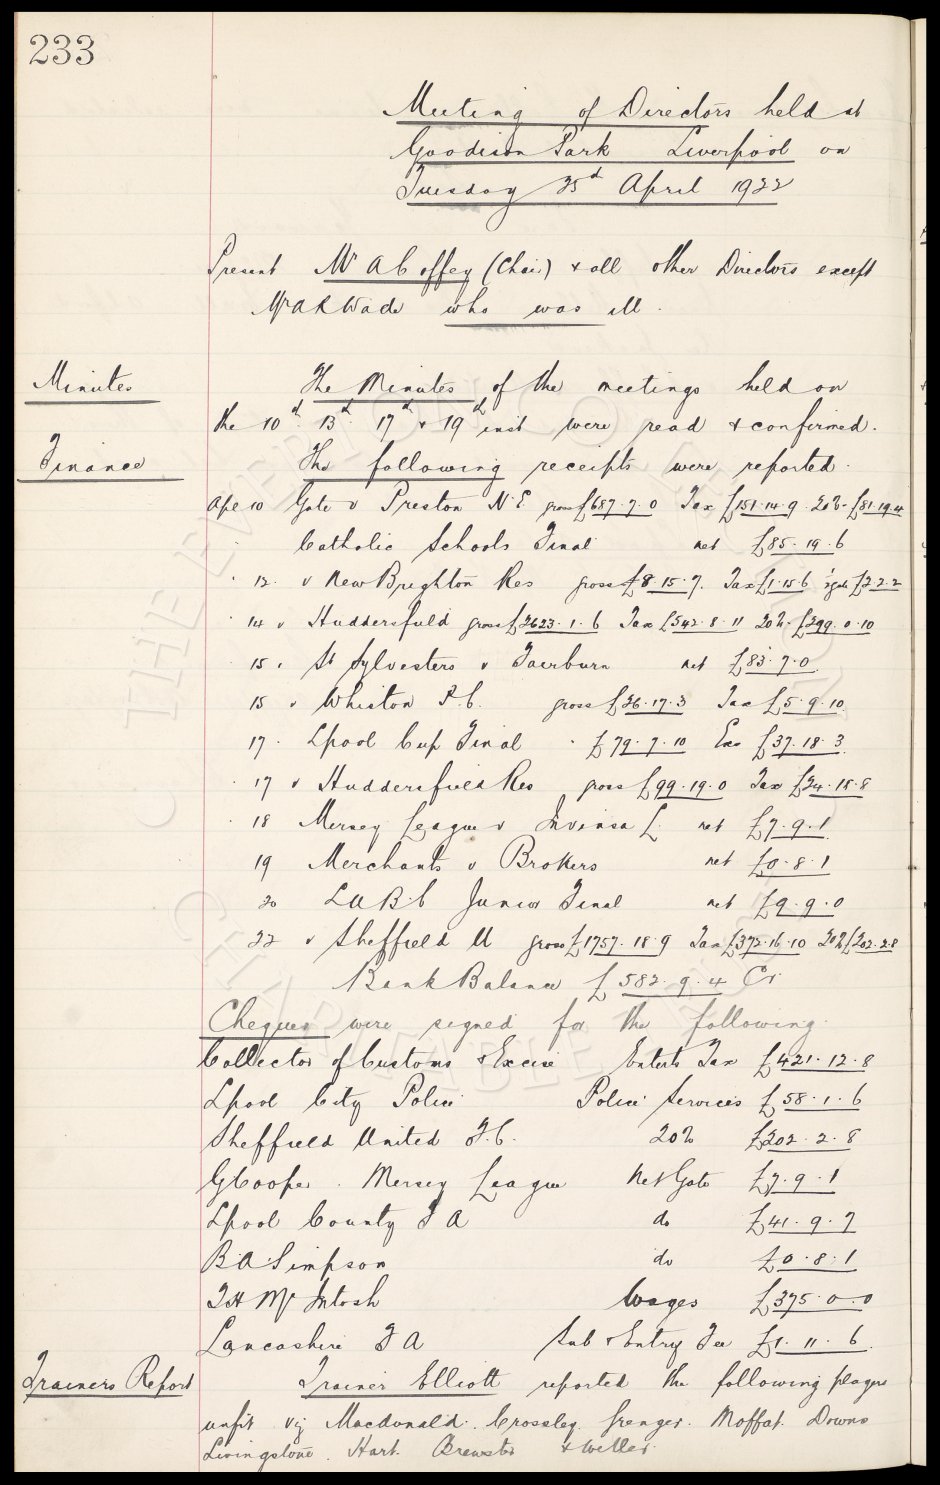 233
Meeting of Directors held at
Goodison Park Liverpool on
Tuesday 25d April 1922
Present Mr A Coffey (Chair) & all other Directors except
Mr A R Wade who was ill.
Minutes
The Minutes of the meetings held on
the 10d. 13d. 17d & 19d inst were read & confirmed.
Finance
The following receipts were reported.
Apl 10 Gate v Preston N.E. gross £687.7.0 Tax £151.14.9 20% £81.19.4
Catholic Schools Final net £85.19.6
" 12. v New Brighton Res gross £8.15.7. Tax £1.15.6 ½ gate £2.2.2
14 v Huddersfield gross £2623.1.6 Tax £542.8.11 20% £299.0.10
15. St Sylvesters v Fairburn net £83.7.0
15 v Whiston P.C. gross £26.17.3 Tax £5.9.10
17. Lpool Cup Final " £79.7.10 Exs £37.18.3
17 v Huddersfield Res gross £99.19.0 Tax £24.18.8
18 Mersey League v Invinsa L. net £7.9.1
19 Merchants v Brokers net £0.8.1
20 LUBC Junior Final net £9.9.0
22 v Sheffield U gross £1757.18.9 Tax £372.16.10 20% £202.2.8
Bank Balance £582.9.4 Cr
Cheques were signed for the following
Collector of Customs & Excise Enterts Tax £421.12.8
Lpool City Police Police Services £58.1.6
Sheffield United F.C. 20% £202.2.8
G Cooper. Mersey League Net Gate £7.9.1
Lpool County F A do £41.9.7
B.A. Simpson do £0.8.1
T H McIntosh Wages £375.0.0
Lancashire F A Sub & Entry Fee £1.11.6
Trainers Report
Trainer Elliott reported the following players
unfit viz Macdonald. Crossley. Grenyer. Moffat. Downs
Livingstone. Hart. Brewster & Weller.
THE EVERTON COLLECTION
CHARITABLE TRUST